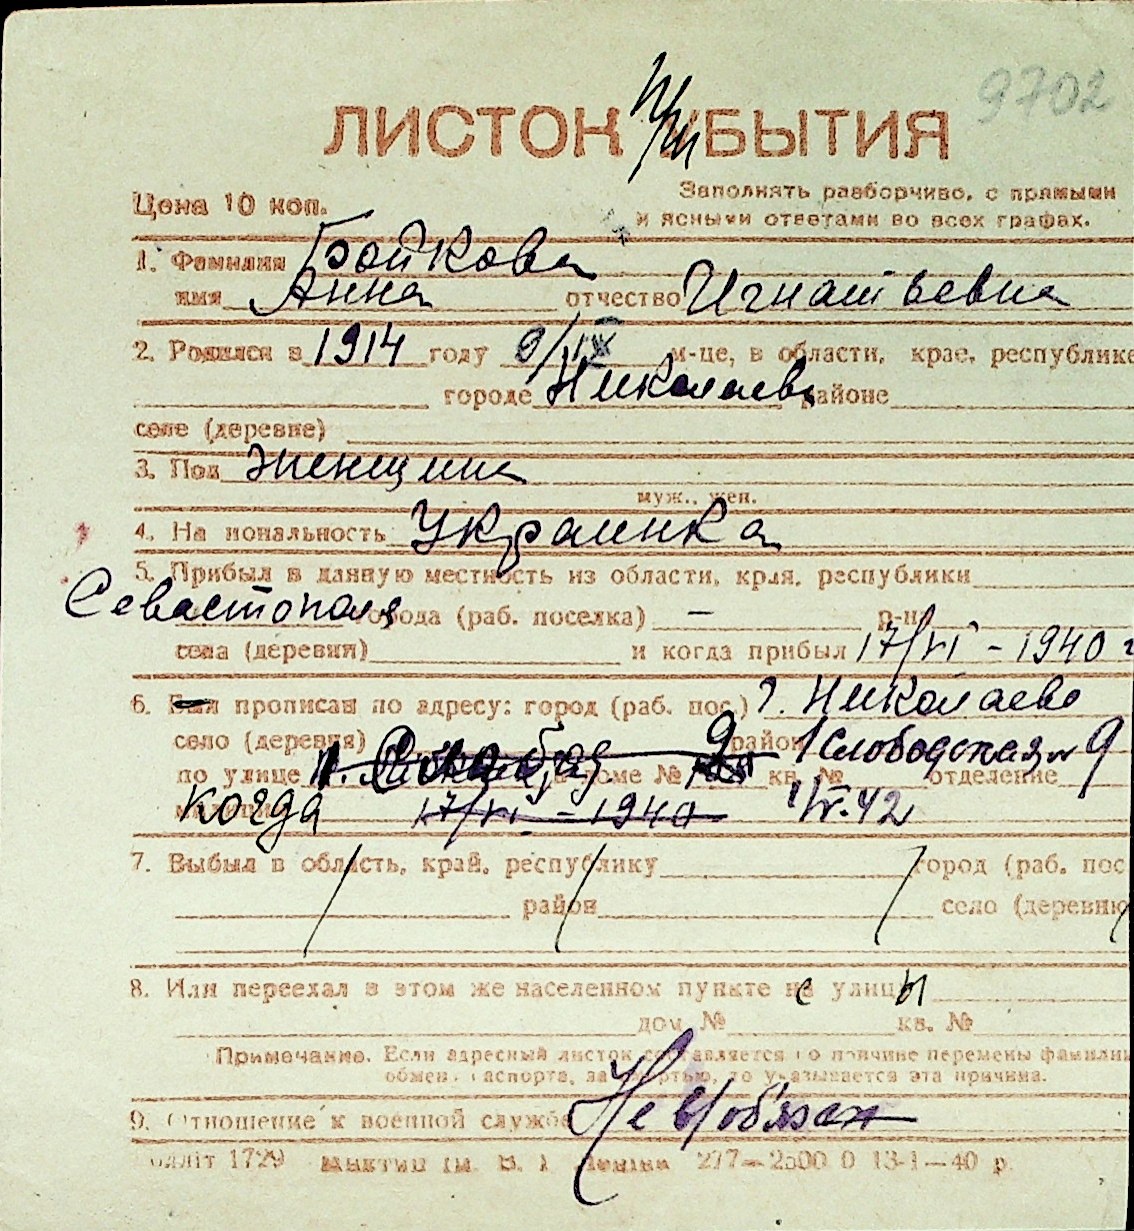 9702
ЛИСТОК УБЫТИЯ
Цена 10 коп.
Заполнять разборчиво, с прямыми
и ясными ответами во всех графах.
1. Фамилия Бойкова
имя Анна отчество Игнатьевна
2. Родился в 1914 году 9/IX м-це, в области, крае, республике
городе Николаев районе
селе (деревне)
3. Пол женщина
муж., жен.
4. Национальность Украинка
5. Прибыл в данную местность из области, края, республики
Севастополя города (раб. поселка) — р-на
села (деревня) и когда прибыл 17/VI - 1940 г
6. Был прописан по адресу: город (раб. пос.) г. Николаев
село (деревня) район 1 Слободская № 9
по улице доме № кв. № отделение
милиции когда 17/VI - 1940 1/IV.42
7. Выбыл в область, край, республику город (раб. пос.
район село (деревню
8. Или переехал в этом же населенном пункте с улицы
дом № кв. №
Примечание. Если адресный листок составляется по причине перемены фамилии
обмена паспорта, за смертью, то указывается эта причина.
9. Отношение к военной службе Не в/обязан
1729 277—2500 0 13-1—40 р.